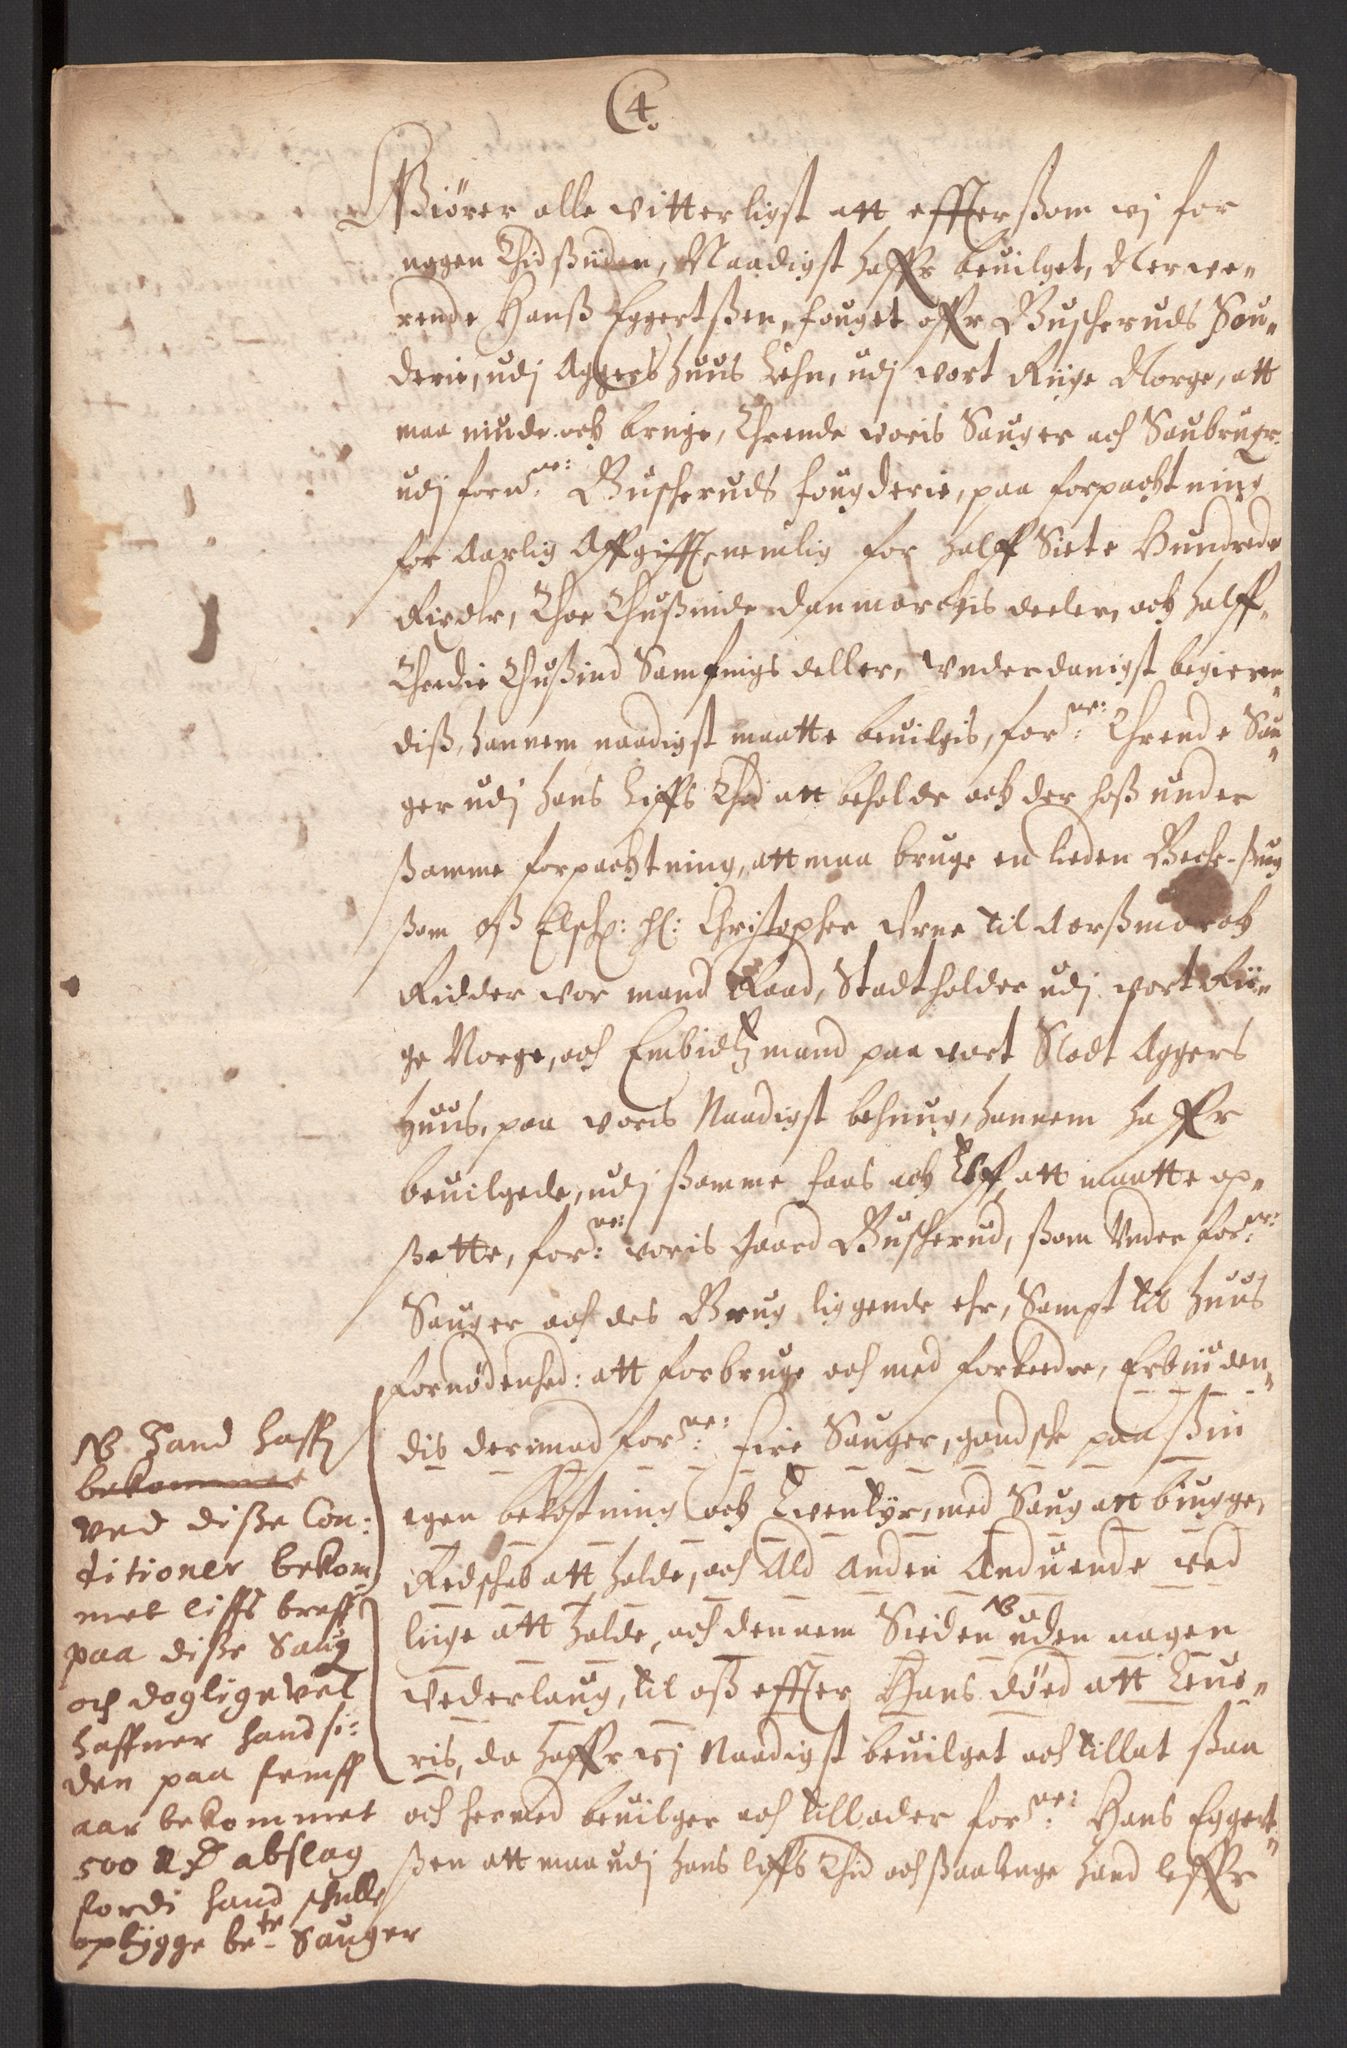 4.
Giörer alle vitterligst att effterßom vj for
nogen Thid ßiiden, Naadigst haffr beuilget, Nerve¬
rende Hanß Eggertßen, fouget offr Buscheruds Fou¬
derie, udj Aggers huus Lehn, udj vort Riige Norge, att
maa niude och bruge, Thrende voris Sauger och Saubrugr
udj forn.ne: Buscheruds fougderie, paa forpachtning
for Aarlig Affgifft, nemlig for halff Siete Hundrede
Rixdlr, Thoe Thußinde danmarchis deeler, och halff¬
Thredie Thußind Samfengs deller, Underdanigst begieren¬
diß, hannem naadigst maatte beuilgis, for:ne: Thrende Sau¬
ger udj hans Liffs Thid att beholde och der hoß under
ßamme forpachtning, att maa bruge en lieden Bech-ßaug
ßom oß Elsch: H: Christopher Urne til Aarßmarch
Ridder vor mand Raad, Stadtholder udj vort Rii¬
ge Norge, och Embidtzmand paa vort Slodt Aggers
huus, paa voris Naadigst behaug, hannem haffr
beuilgede, udj ßamme faas och Elff, att maatte op¬
ßette, for:ne: voris Gaard Buscherud, ßom Under for:ne:
Sauger och des Brug liggende ehr, Sampt til huus
fornødenhed: att forbruge och med forbedre, Erbiuden¬
dis derimod for:ne: fire Sauger, gandsche paa ßin
egen bekostning och Eventyr, med Saug att biugge,
Redschab att holde, och Ald anden Anduende ved
liige att holde, och dennem Sieden NB uden nogen
vederlaug, til oß effter Hans døed att Leue¬
ris, da haffr vj Naadigst beuilget och tillat ßaa
och hermed beuilger och tillader for:ne: Hans Eggert¬
ßen att maa udj hans liffs Thid och ßaalenge hand leffr
NB Hand haffr
bekommet
Ved diße Con:
ditioner bekom
met liffs breff
paa diße Saug
och dogligevel
haffuer hand si:
den paa femff
aar bekommet
500 Rd abslag
fordi hand schulle
opbygge be:te Sauger